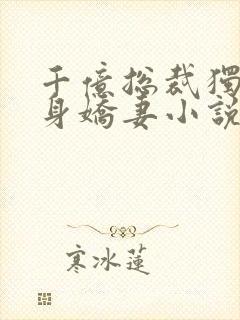 千億總裁獨
身嬌妻小說
寒冰蓮